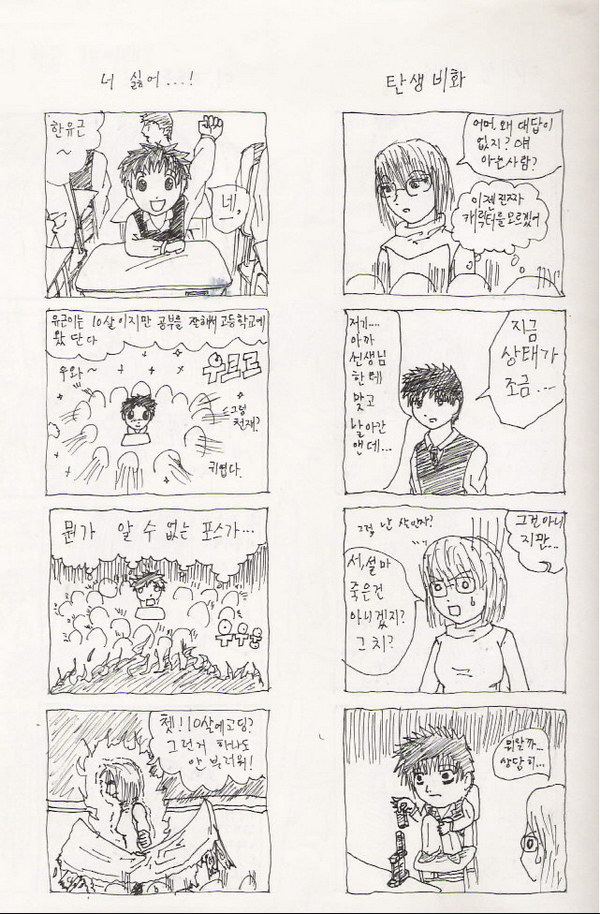 너 싫어...!
한유근
~
네,
유근이는 10살이지만 공부를 잘해서 고등학교에
왔단다
우와~
우르르
그럼
천재?
귀엽다.
뭔가 알 수 없는 포스가...
쳇! 10살에 고딩?
그런거 하나도
안 부러워!
탄생 비화
어머, 왜 대답이
없지? 얘
아는사람?
이젠 진짜
캐릭터를 모르겠어
저기....
아까
선생님
한테
맞고
날아간
앤데...
지금
상태가
조금...
그럼 난 살인자?
그건 아니
지만..
서, 설마
죽은건
아니겠지?
그치?
뭐랄까...
상당히...